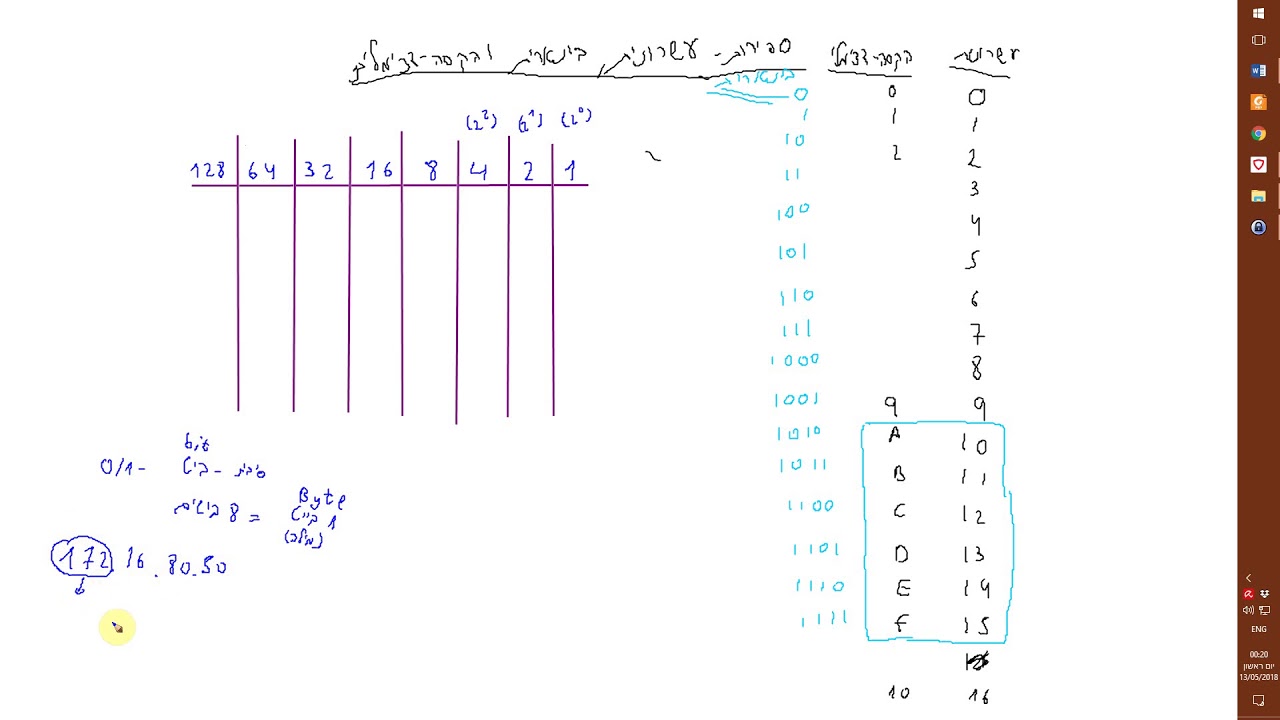 ספירות - עשרונית, בינארית והקסה-דצימלית
עשרונית הקסה-דצימלי בינארית
0 0 0
1 1 1
2 2 10
3 11
4 100
5 101
6 110
7 111
8 1000
9 9 1001
10 A 1010
11 B 1011
12 C 1100
13 D 1101
14 E 1110
15 F 1111
16 10
(2²) (2¹) (2⁰)
128 64 32 16 8 4 2 1
bit
סיבית - ביט - 0/1
Byte
1 בייט = 8 ביטים
(מילה)
172.16.80.50
ENG
00:20
יום ראשון
13/05/2018